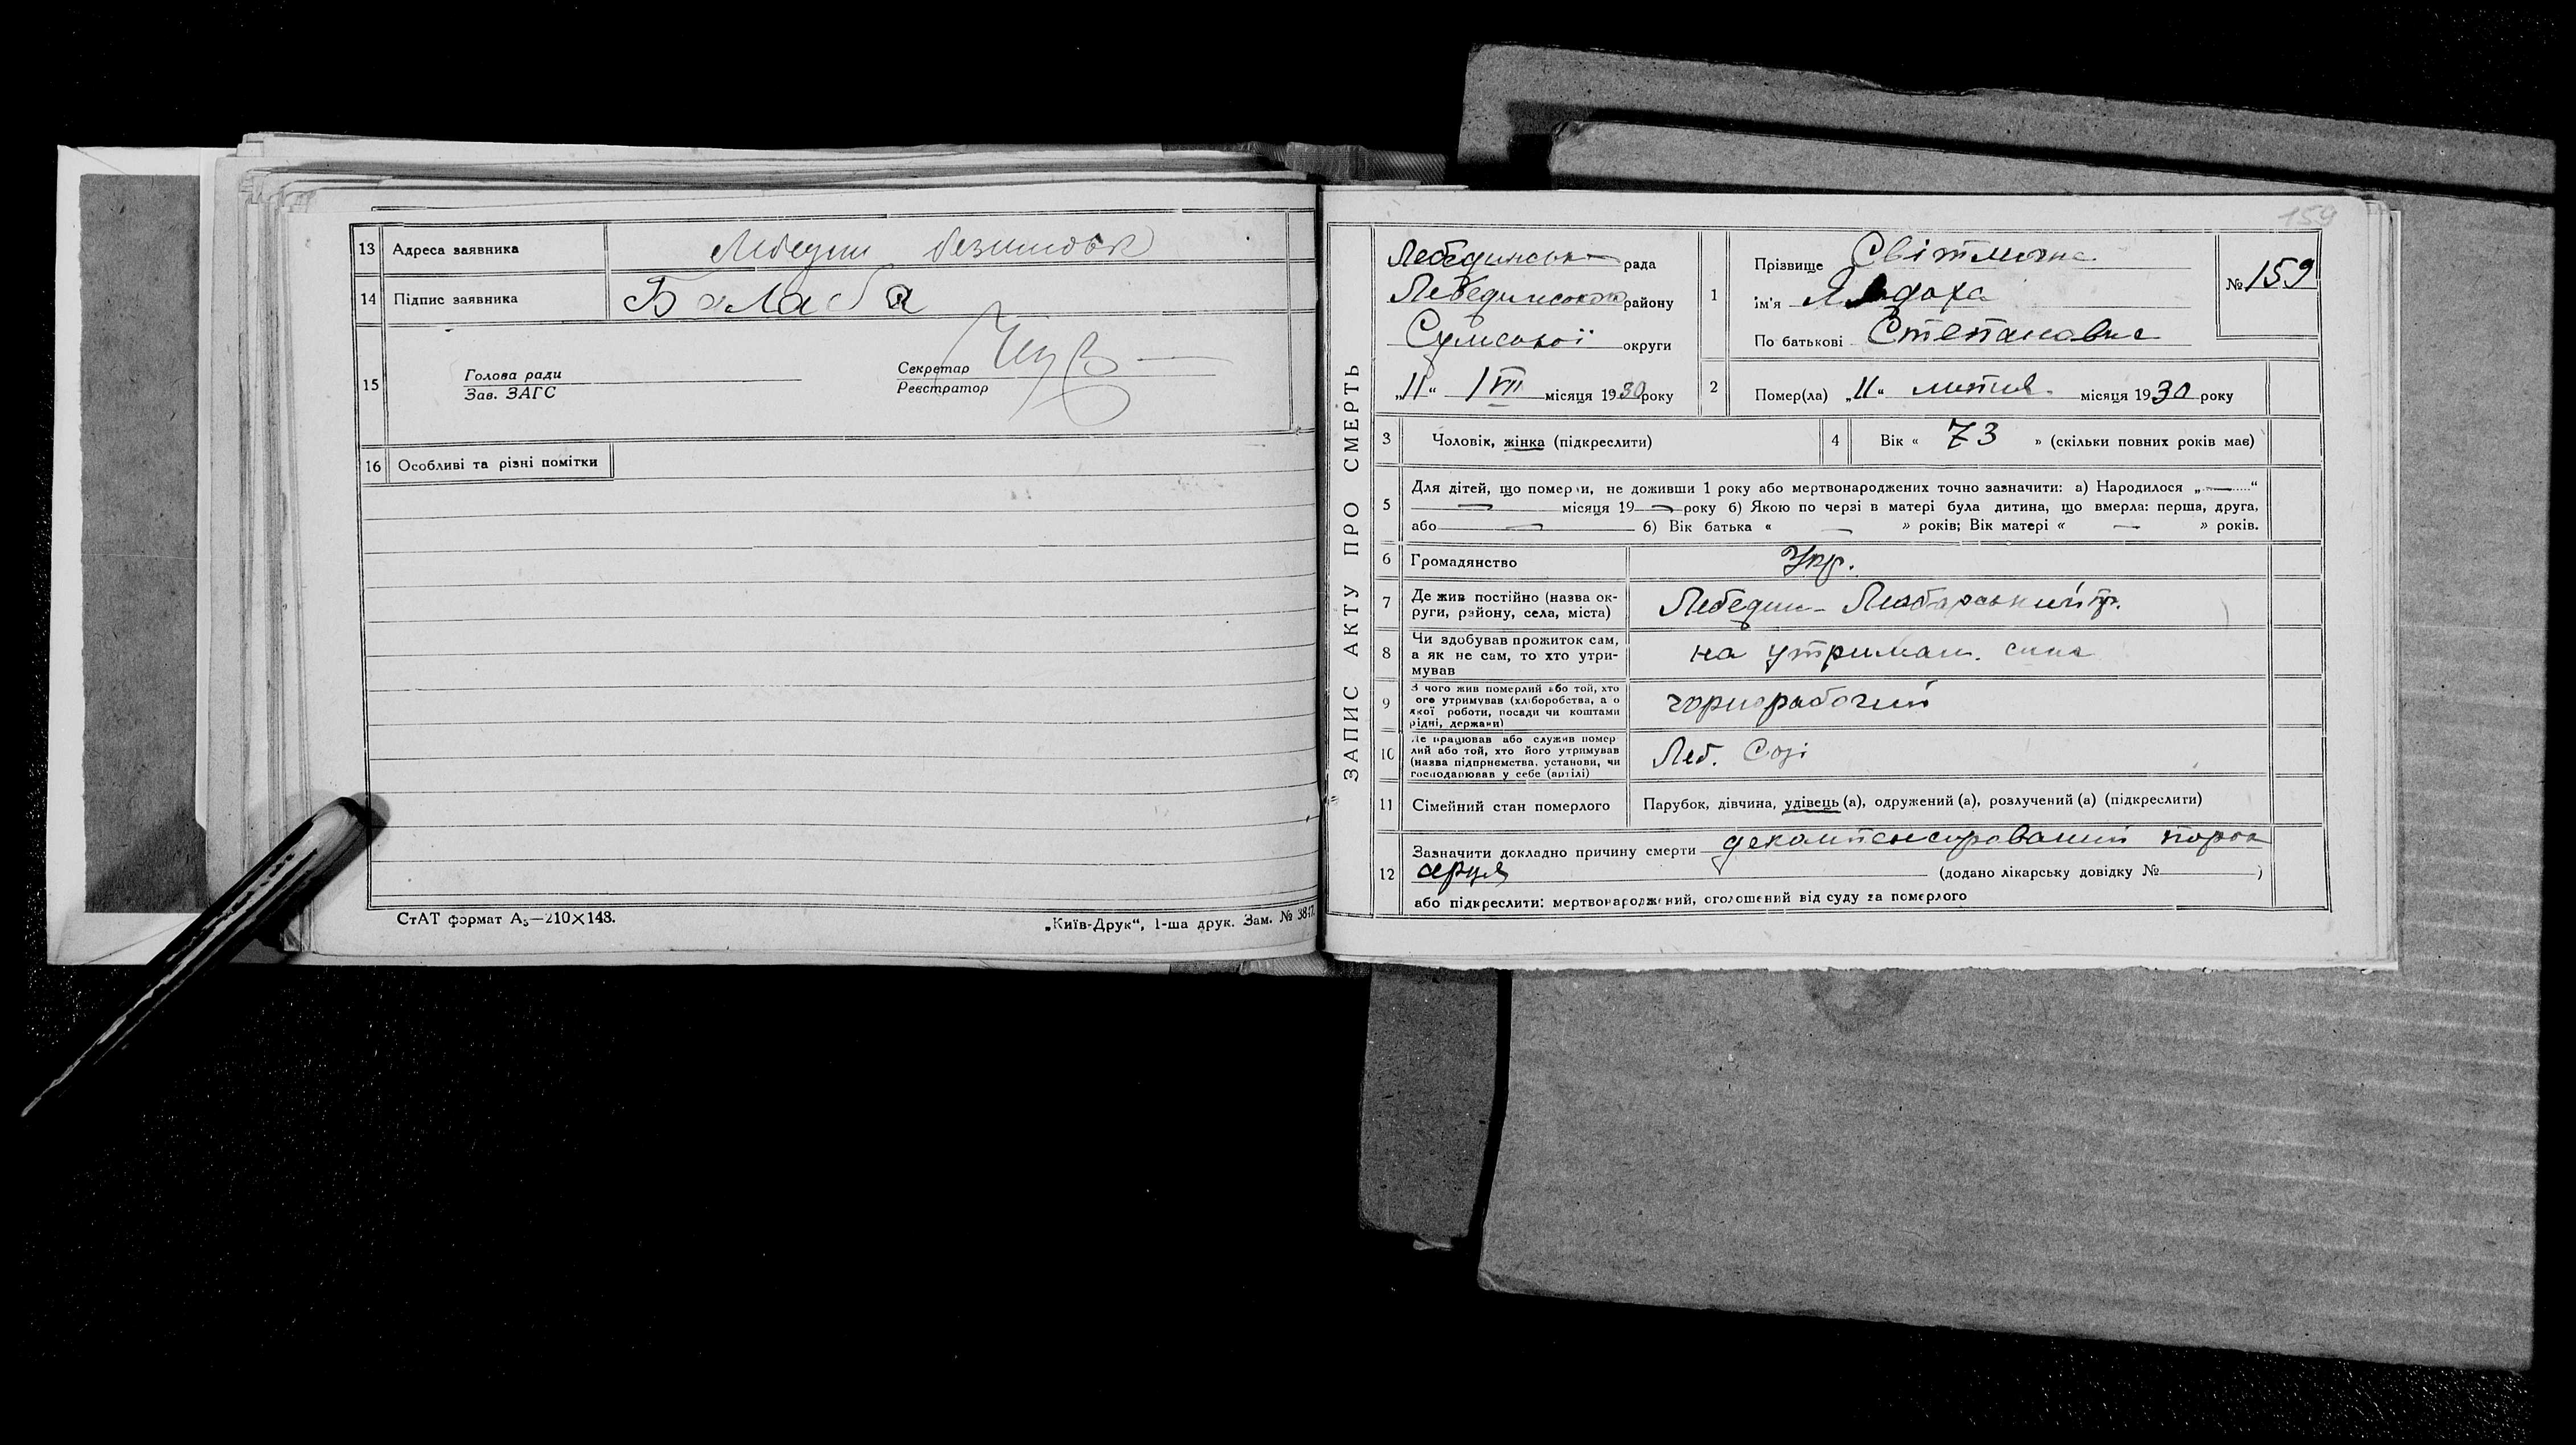 13 Адреса заявника Лебедин
14 Підпис заявника Балаба
15
Голова ради
Зав. ЗАГС
Секретар
Реєстратор
16 Особливі та різні помітки
СтАТ формат А5—210×148.
„Київ-Друк“, 1-ша друк. Зам. №
159
ЗАПИС АКТУ ПРО СМЕРТЬ
Лебединська рада
Лебединського району
Сумської округи
„11“ VII місяця 1930 року
1
Прізвище
ім'я Явдоха
По батькові Степановна
№ 159
2 Помер(ла) „11“ липня місяця 1930 року
3 Чоловік, жінка (підкреслити)
4 Вік « 73 » (скільки повних років має)
5 Для дітей, що померли, не доживши 1 року або мертвонароджених точно зазначити: а) Народилося „—“
— місяця 19— року б) Якою по черзі в матері була дитина, що вмерла: перша, друга,
або — б) Вік батька « — » років; Вік матері « — » років.
6 Громадянство Укр.
7 Де жив постійно (назва ок-
руги, району, села, міста) Лебедин -
8 Чи здобував прожиток сам,
а як не сам, то хто утри-
мував на утриман. сина
9 З чого жив померлий або той, хто
ого утримував (хліборобства, а о
якої роботи, посади чи коштами
рідні, держави) чорнорабочий
10 Де працював або служив помер
лий або той, хто його утримував
(назва підприємства, установи, чи
господарював у себе (артілі) Леб.
11 Сімейний стан померлого Парубок, дівчина, удівець (а), одружений (а), розлучений (а) (підкреслити)
12 Зазначити докладно причину смерти декомпенсирований порок
серця (додано лікарську довідку № )
або підкреслити: мертвонароджений, оголошений від суду за померлого